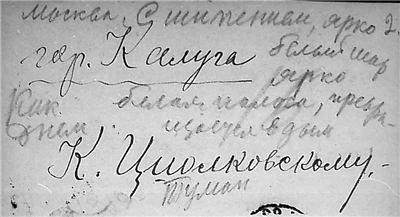 Москва. С шипением, ярко 2.
гор. Калуга
белый шар
ярко
Как белая полоса, превра-
днем щаяся в дым
К. Циолковскому.
Туман